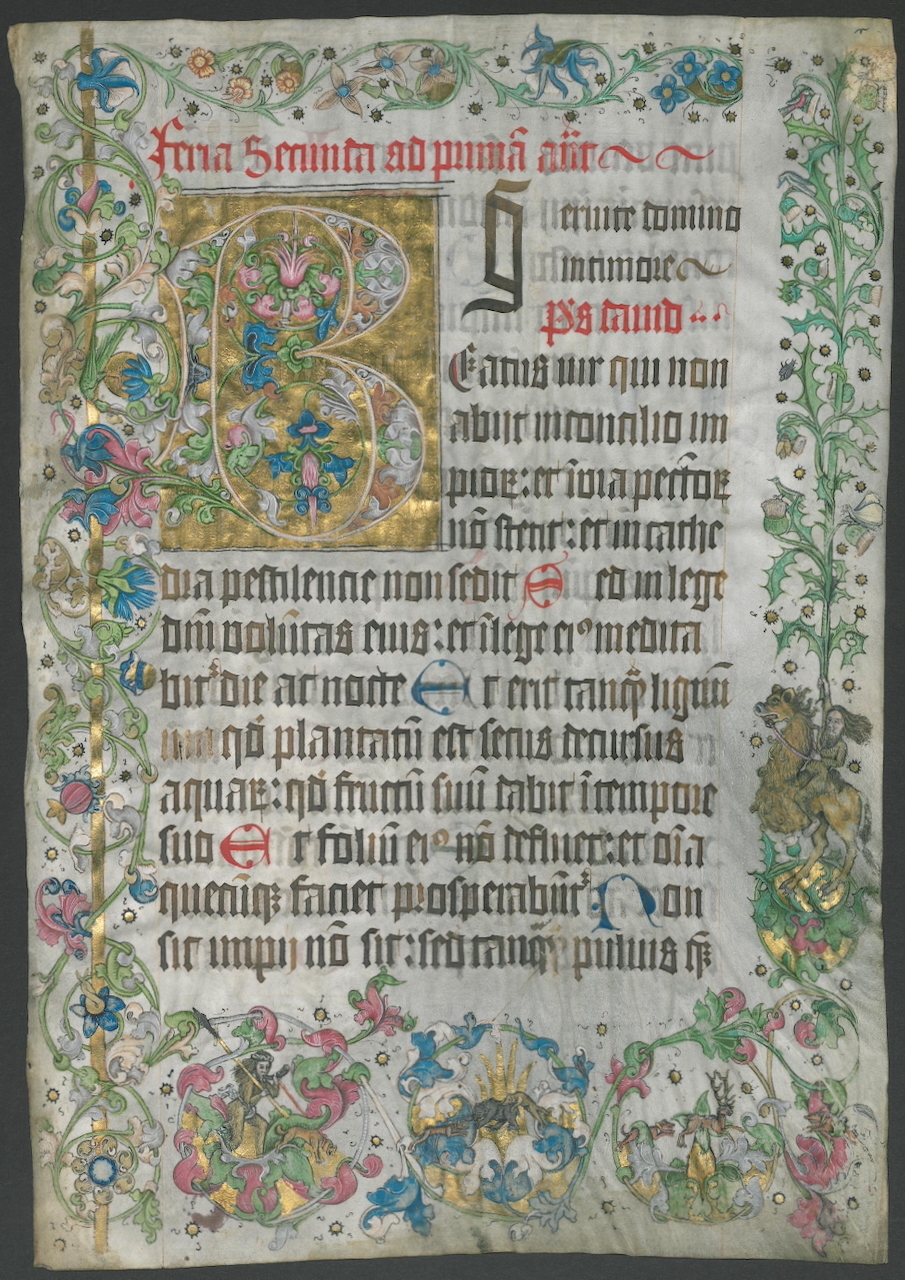 Feria Secunda ad primā añt
Seruite domino
in timore
Ps dauid
BEatus uir qui non
abijt in concilio im
pioꝝ: et ī uia peccꝍꝝ
nō stetit: et in cathe
dra pestilencie non sedit Sed in lege
dn̄i volūtas eius: et ī lege eiꝰ medita
bit᷑ die ac nocte Et erit tanq̄ lignū
qđ plantatū est secus decursus
aquaꝝ: qđ fructū suū dabit ī tempore
suo Et foliū eiꝰ nō defluet: et oīa
quecūqꝫ faciet prosperabūt᷑ Non
sic impij nō sic: sed tanq̄ puluis